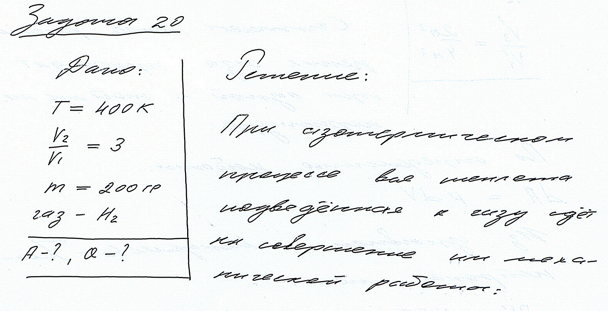 Задача 20
Дано:
T = 400 К
V₂/V₁ = 3
m = 200 гр
газ - H₂
A-?, Q-?
Решение:
При изотермическом
процессе вся теплота
подведённая к газу идёт
на совершение им меха-
нической работы: